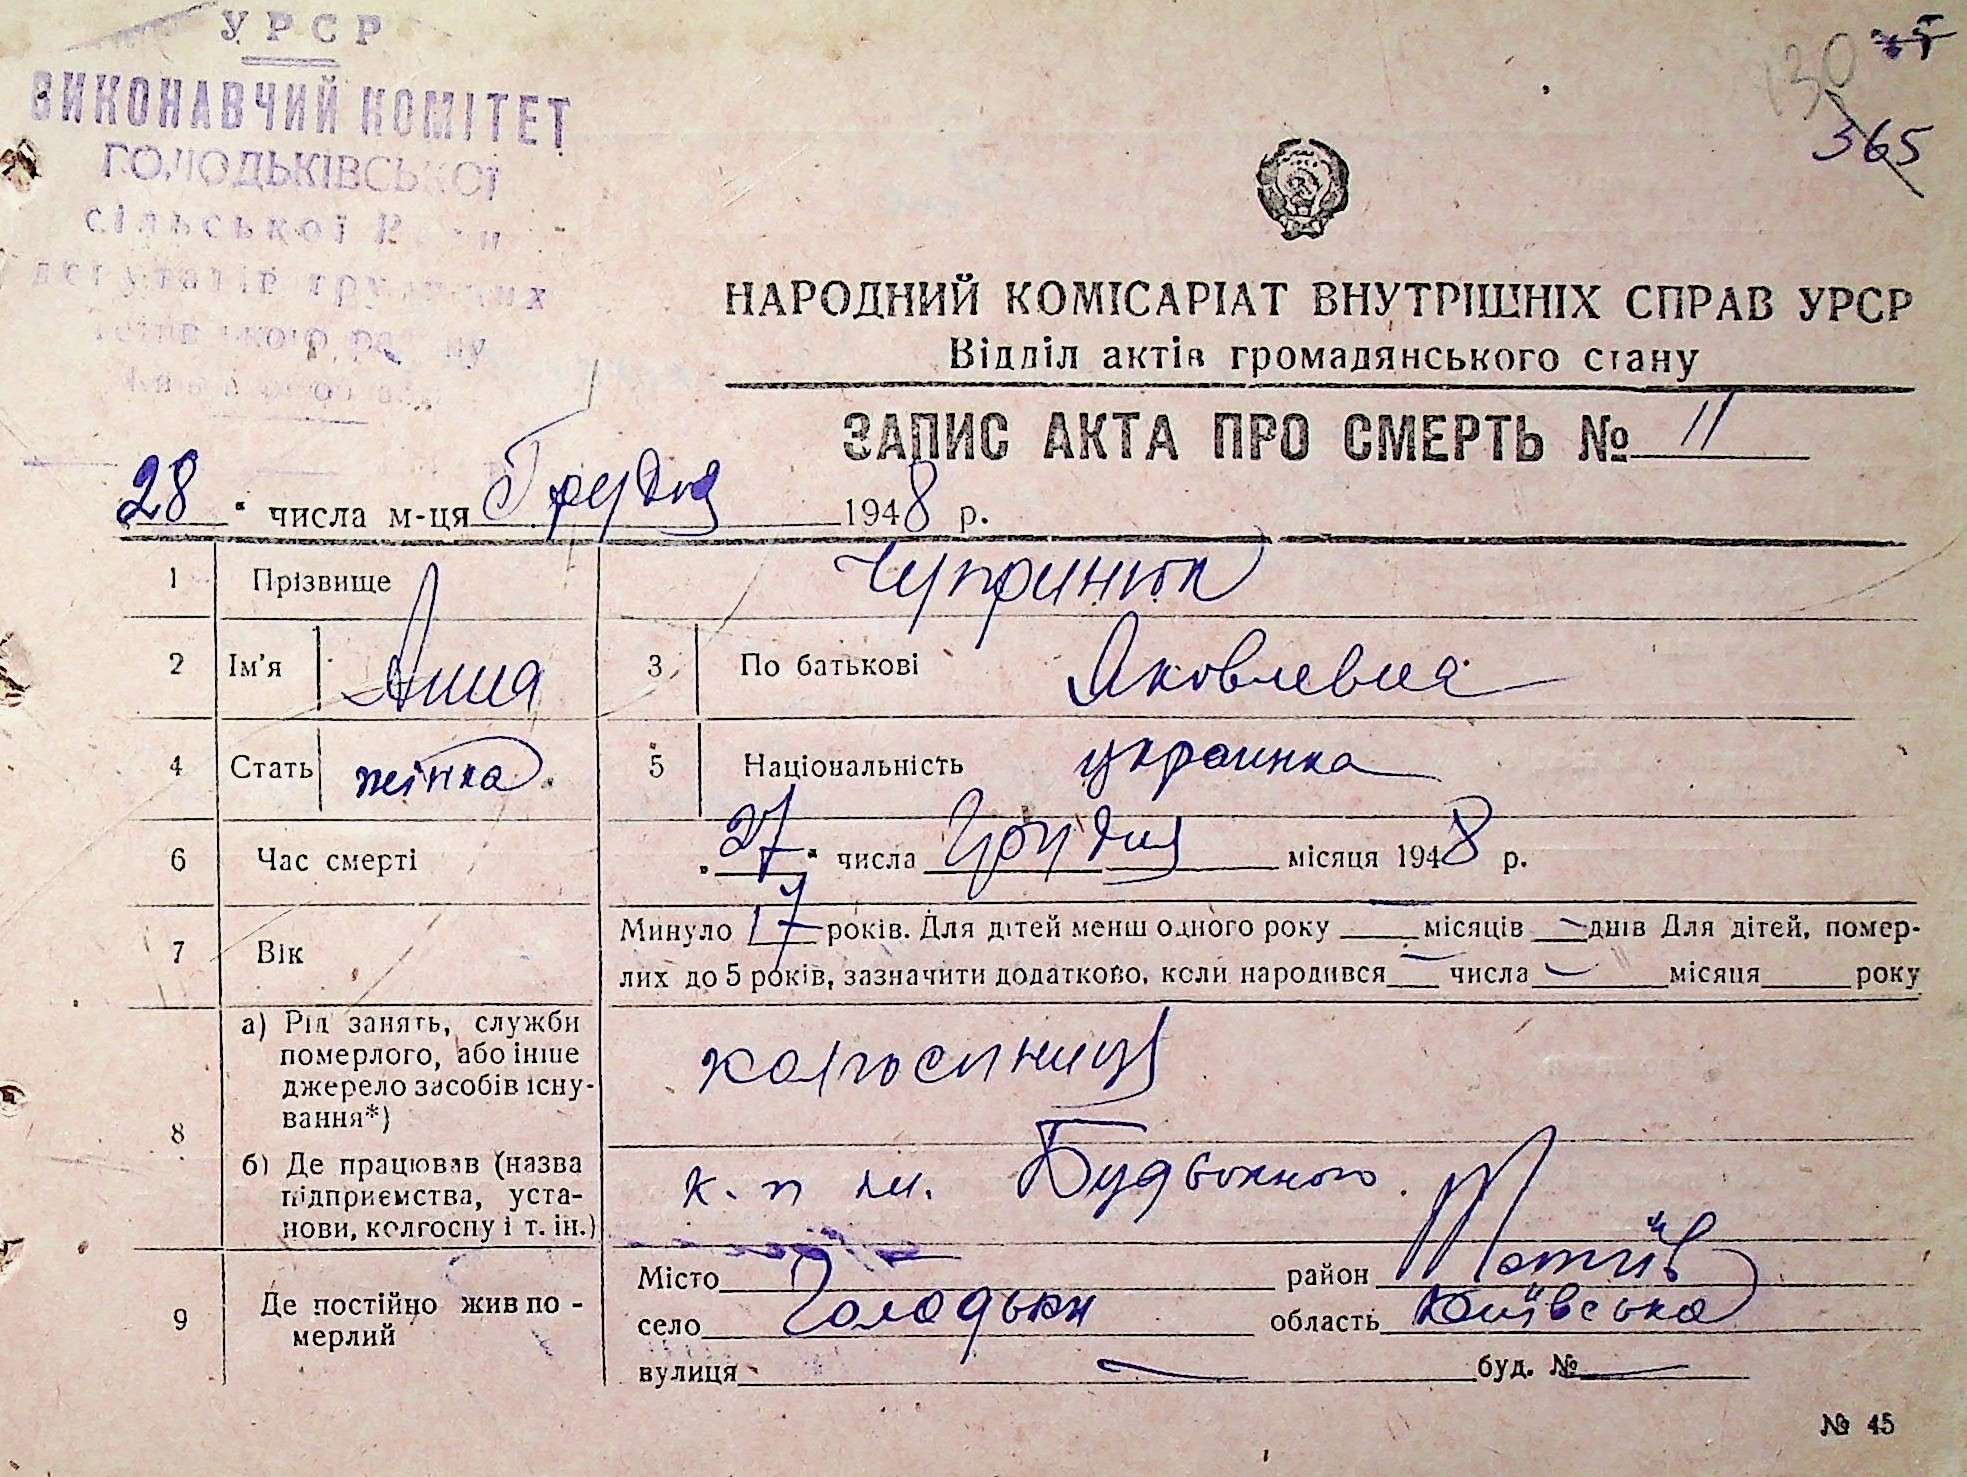 УРСР
ВИКОНАВЧИЙ КОМІТЕТ
ГОЛОДЬКІВСЬКОЇ
сільської Ради
депутатів трудящих
130
365
НАРОДНИЙ КОМІСАРІАТ ВНУТРІШНІХ СПРАВ УРСР
Відділ актів громадянського стану
ЗАПИС АКТА ПРО СМЕРТЬ № 11
28 " числа м-ця Грудня 1948 р.
1 Прізвище Чупринка
2 Ім'я Анна 3 По батькові Яковлевна
4 Стать жінка 5 Національність украинка
6 Час смерті „27" числа Грудня місяця 1948 р.
7 Вік Минуло 17 років. Для дітей менш одного року — місяців — днів Для дітей, помер-
лих до 5 років, зазначити додатково, коли народився — числа — місяця року
8 а) Рід занять, служби
померлого, або інше
джерело засобів існу-
вання*)
колгосниця
б) Де працював (назва
підприємства, уста-
нови, колгоспу і т. ін.)
Будьонного.
9 Де постійно жив по-
мерлий
Місто район Тетіїв
село Голодьки область Київська
вулиця — буд. № —
№ 45